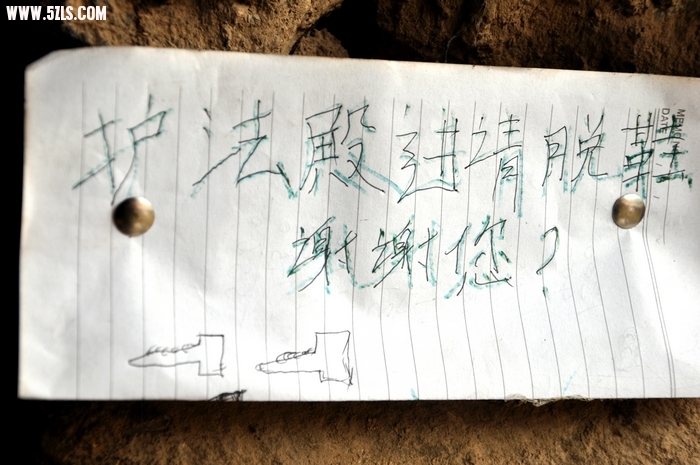 WWW.5ZLS.COM
护法殿进请脱鞋
谢谢您?